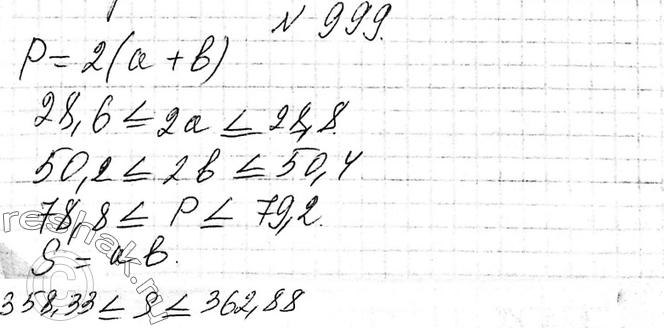 N 999.
P = 2(a + b)
28,6 ≤ 2a ≤ 28,8
50,2 ≤ 2b ≤ 50,4
78,8 ≤ P ≤ 79,2.
S = a·b.
358,33 ≤ S ≤ 362,88
reshak.ru